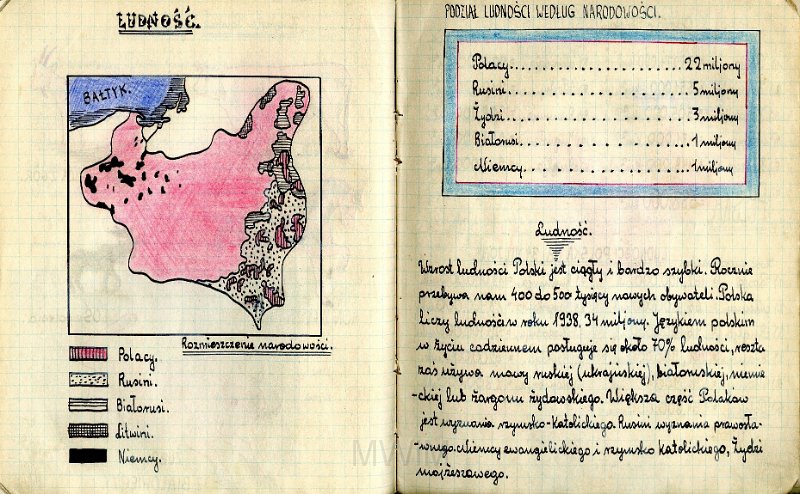 LUDNOŚĆ.
BAŁTYK.
Rozmieszczenie narodowości.
Polacy.
Rusini.
Białorusi.
Litwini.
Niemcy.
PODZIAŁ LUDNOŚCI WEDŁUG NARODOWOŚCI.
Polacy........................22 miljony
Rusini........................5 miljony
Żydzi........................3 miljony
Białorusi........................1 miljony
Niemcy........................1 miljony
Ludność.
Wzrost ludności Polski jest ciągły i bardzo szybki. Rocznie
przebywa nam 400 do 500 tysięcy nowych obywateli. Polska
liczy ludność w roku 1938, 34 miljony. Językiem polskim
w życiu codziennem posługuje się około 70% ludności, reszta
zaś używa mowy ruskiej (ukraińskiej), białoruskiej, niemie
-ckiej lub żargonu żydowskiego. Większa część Polaków
jest wyznania rzymsko-katolickiego. Rusini wyznania prawosła-
wnego. Niemcy ewangielickiego i rzymsko katolickiego, Żydzi
mojżeszowego.